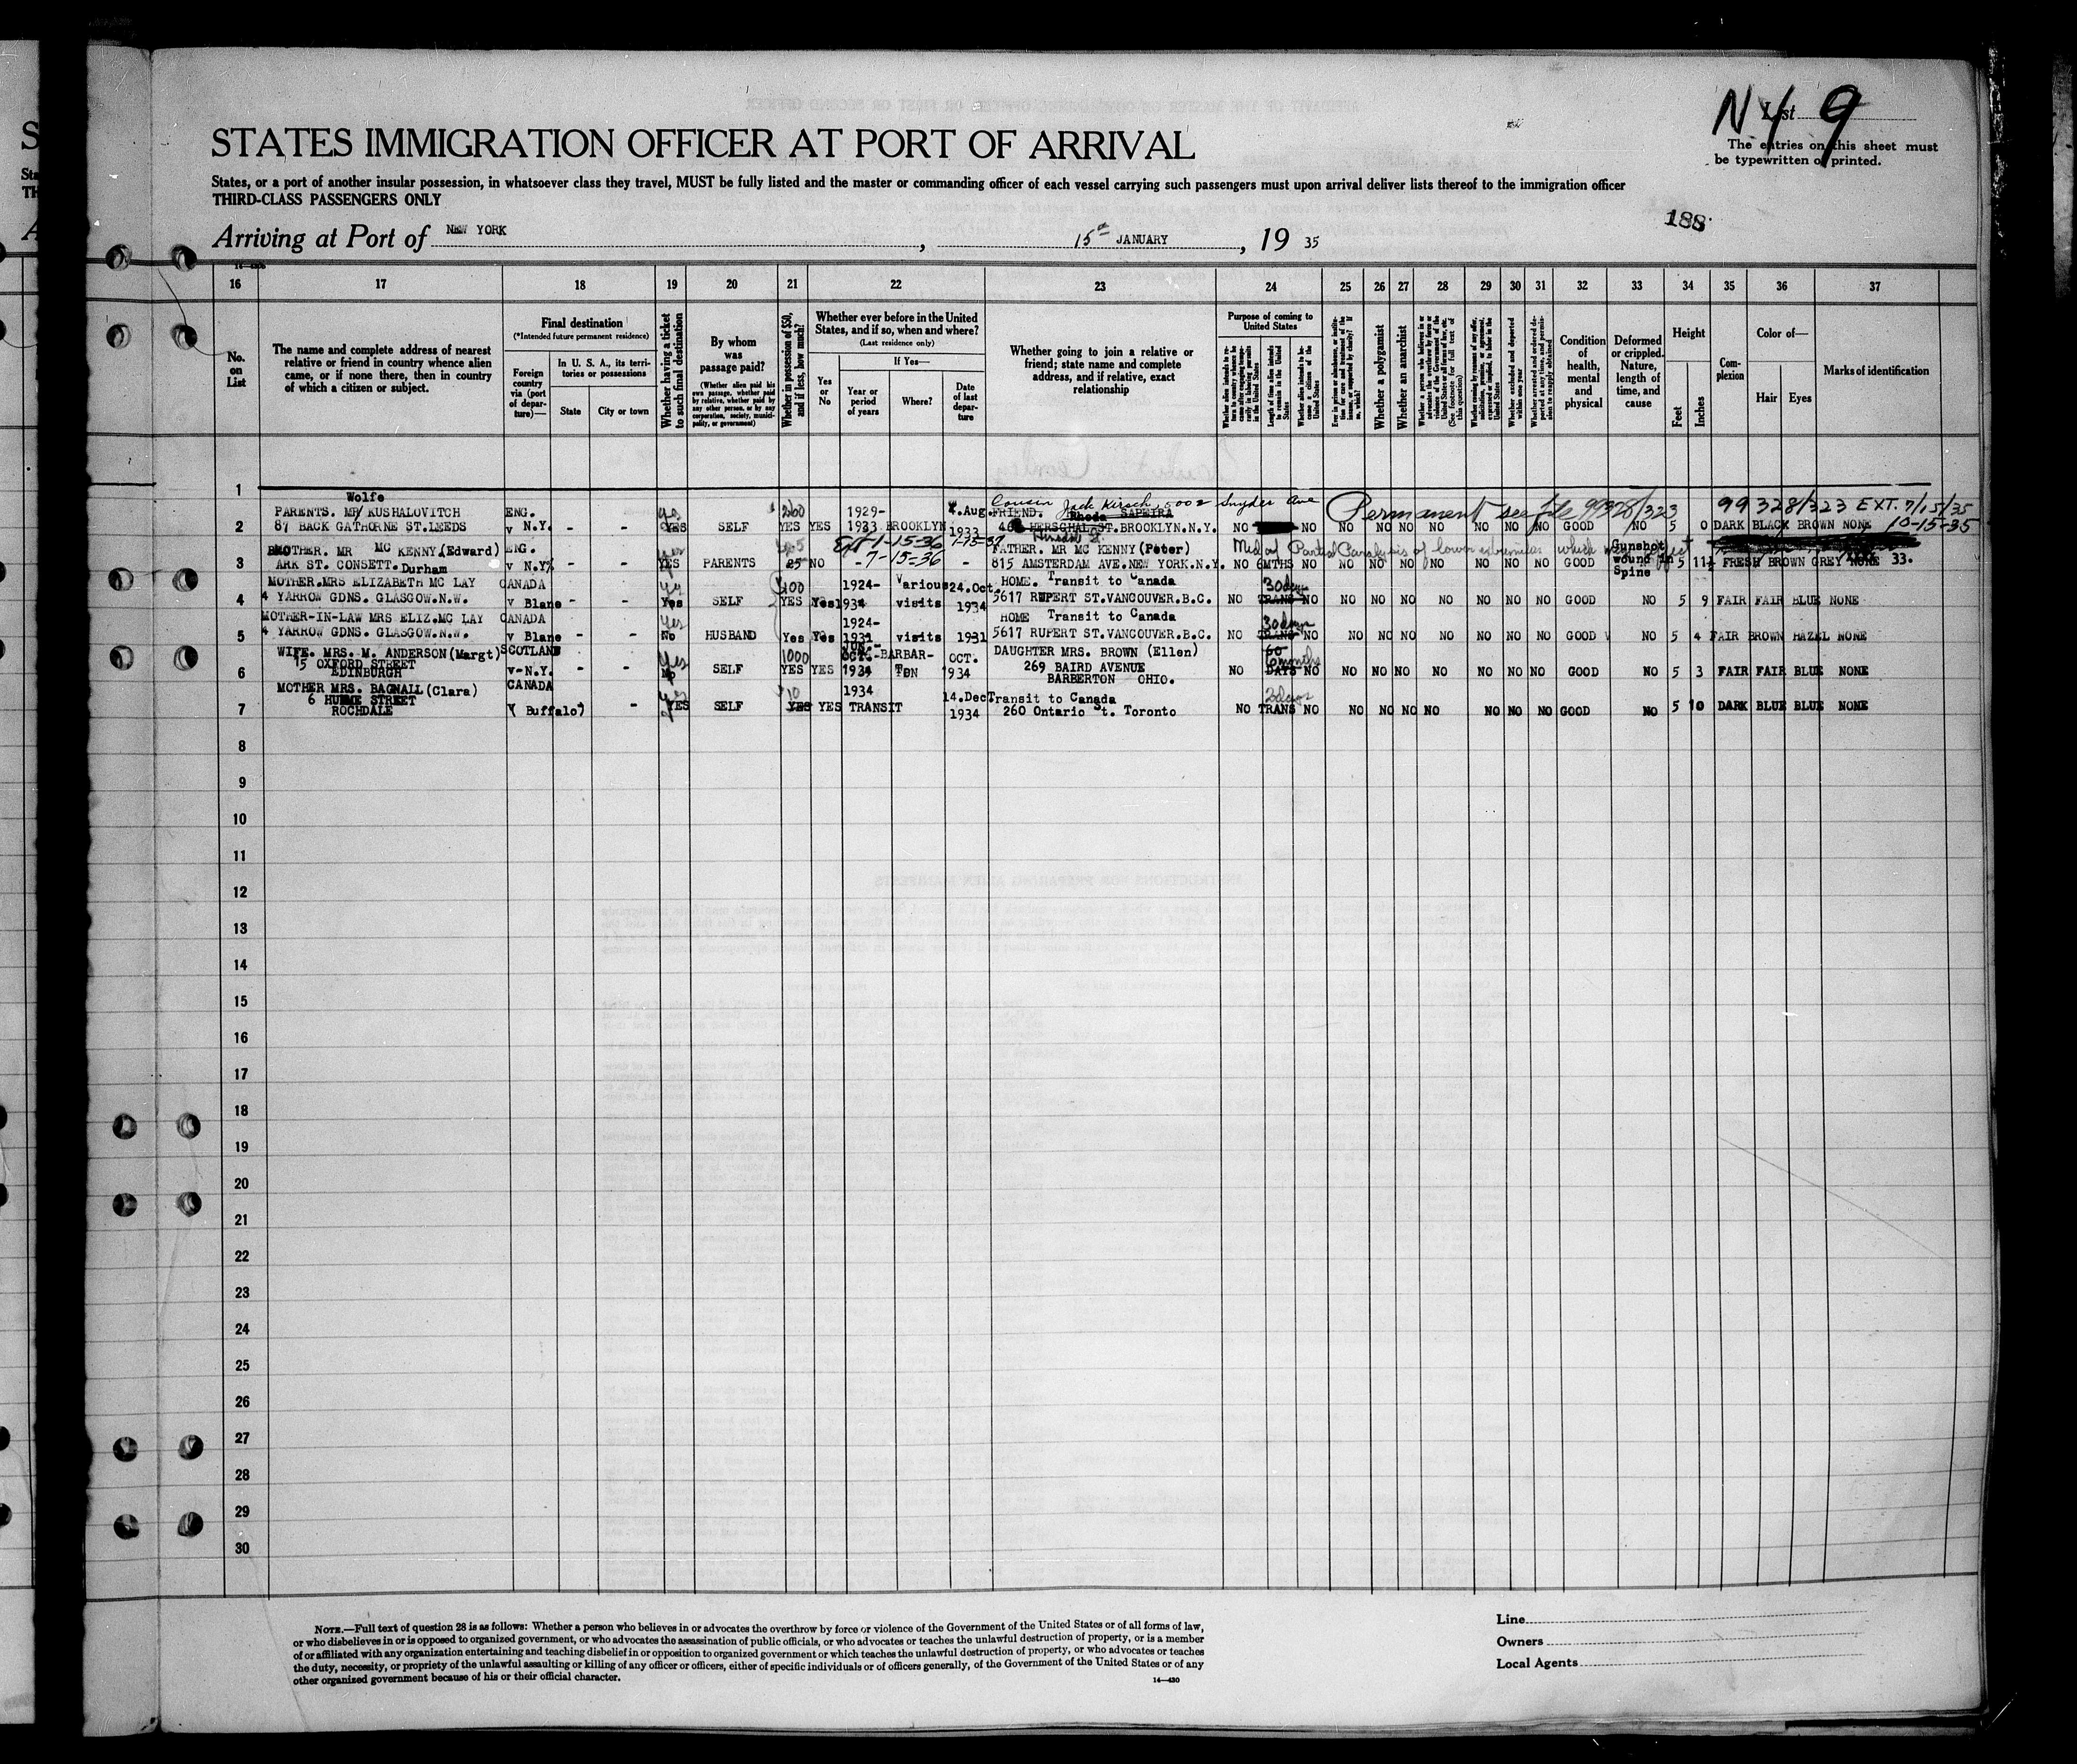 N.Y 9
List
The entries on this sheet must
be typewritten or printed.
STATES IMMIGRATION OFFICER AT PORT OF ARRIVAL
States, or a port of another insular possession, in whatsoever class they travel, MUST be fully listed and the master or commanding officer of each vessel carrying such passengers must upon arrival deliver lists thereof to the immigration officer
THIRD-CLASS PASSENGERS ONLY
188
Arriving at Port of NEW YORK, 15th JANUARY, 19 35
16 17 18 19 20 21 22 23 24 25 26 27 28 29 30 31 32 33 34 35 36 37
No. on List
The name and complete address of nearest relative or friend in country whence alien came, or if none there, then in country of which a citizen or subject.
Final destination
(*Intended future permanent residence)
Foreign country via (port of departure)—
In U. S. A., its territories or possessions
State
City or town
Whether having a ticket to such final destination
By whom was passage paid?
(Whether alien paid his own passage, whether paid by relative, whether paid by any other person, or by any corporation, society, municipality, or government)
Whether in possession of $50, and if less, how much?
Whether ever before in the United States, and if so, when and where?
(Last residence only)
Yes or No
If Yes—
Year or period of years
Where?
Date of last departure
Whether going to join a relative or friend; state name and complete address, and if relative, exact relationship
Purpose of coming to United States
Whether a polygamist
Whether an anarchist
Condition of health, mental and physical
Deformed or crippled. Nature, length of time, and cause
Height
Feet
Inches
Complexion
Color of—
Hair
Eyes
Marks of identification
1
Wolfe
Cousin Jack Kirsch 5002 Snyder Ave
Permanent see file 99328/323
99328/323 EXT. 7/15/35
10-15-35
PARENTS. MR KUSHALOVITCH ENG. yes 200 1929- 4.Aug. FRIEND. Rhoda SAPEIRA
2 87 BACK GATHORNE ST.LEEDS v N.Y. - - YES SELF YES YES 1933 BROOKLYN 1933 HERSCHAL ST.BROOKLYN.N.Y. NO NO NO NO NO NO NO NO NO GOOD NO 5 0 DARK BLACK BROWN NONE
Ext 1-15-36 1-15-37
BROTHER. MR MC KENNY (Edward) ENG. yes FATHER. MR MC KENNY (Peter) Partial Paralysis of lower extremities which Gunshot
3 ARK ST. CONSETT. Durham v N.Y. - - YES PARENTS 25 NO -7-15-36 - 815 AMSTERDAM AVE.NEW YORK.N.Y. NO 6MTHS NO NO NO NO NO NO NO NO GOOD wound in Spine 5 11½ FRESH BROWN GREY NONE 33.
MOTHER.MRS ELIZABETH MC LAY CANADA yes 100 1924- Various 24.Oct HOME. Transit to Canada 30days
4 4 YARROW GDNS. GLASGOW.N.W. v Blane - - Yes SELF YES Yes 1934 visits 1934 5617 RUPERT ST.VANCOUVER.B.C. NO TRANS NO NO NO NO NO NO NO NO GOOD NO 5 9 FAIR FAIR BLUE NONE
MOTHER-IN-LAW MRS ELIZ.MC LAY CANADA yes 1924- HOME Transit to Canada 30days
5 4 YARROW GDNS. GLASGOW.N.W. v Blane - - No HUSBAND Yes Yes 1931 visits 1931 5617 RUPERT ST.VANCOUVER.B.C. NO TRANS NO NO NO NO NO NO NO NO GOOD NO 5 4 FAIR BROWN HAZEL NONE
WIFE. MRS. M. ANDERSON (Margt) SCOTLAND yes 1000 OCT.- BARBAR- OCT. DAUGHTER MRS. BROWN (Ellen) 60 6months
6 15 OXFORD STREET EDINBURGH v-N.Y. - - No SELF YES YES 1934 TON 1934 269 BAIRD AVENUE BARBERTON OHIO. NO DAYS NO NO NO NO NO NO NO NO GOOD NO 5 3 FAIR FAIR BLUE NONE
MOTHER MRS. BAGNALL (Clara) CANADA yes 10 1934 14.Dec Transit to Canada
7 6 HUME STREET ROCHDALE (Buffalo) - YES SELF YES YES TRANSIT 1934 260 Ontario St. Toronto NO TRANS NO NO NO NO NO NO NO NO GOOD NO 5 10 DARK BLUE BLUE NONE
8
9
10
11
12
13
14
15
16
17
18
19
20
21
22
23
24
25
26
27
28
29
30
NOTE.—Full text of question 28 is as follows: Whether a person who believes in or advocates the overthrow by force or violence of the Government of the United States or of all forms of law,
or who disbelieves in or is opposed to organized government, or who advocates the assassination of public officials, or who advocates or teaches the unlawful destruction of property, or is a member
of or affiliated with any organization entertaining and teaching disbelief in or opposition to organized government or which teaches the unlawful destruction of property, or who advocates or teaches
the duty, necessity, or propriety of the unlawful assaulting or killing of any officer or officers, either of specific individuals or of officers generally, of the Government of the United States or of any
other organized government because of his or their official character.
14—430
Line
Owners
Local Agents